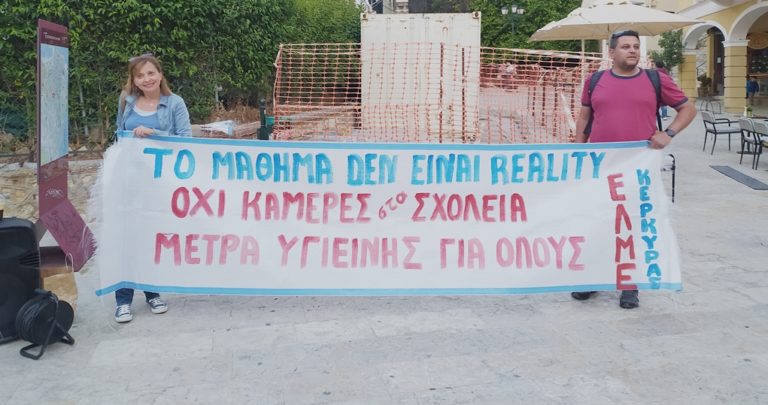 ΤΟ ΜΑΘΗΜΑ ΔΕΝ ΕΙΝΑΙ REALITY
ΟΧΙ ΚΑΜΕΡΕΣ στα ΣΧΟΛΕΙΑ
ΜΕΤΡΑ ΥΓΙΕΙΝΗΣ ΓΙΑ ΟΛΟΥΣ
ΕΛΜΕ
ΚΕΡΚΥΡΑΣ